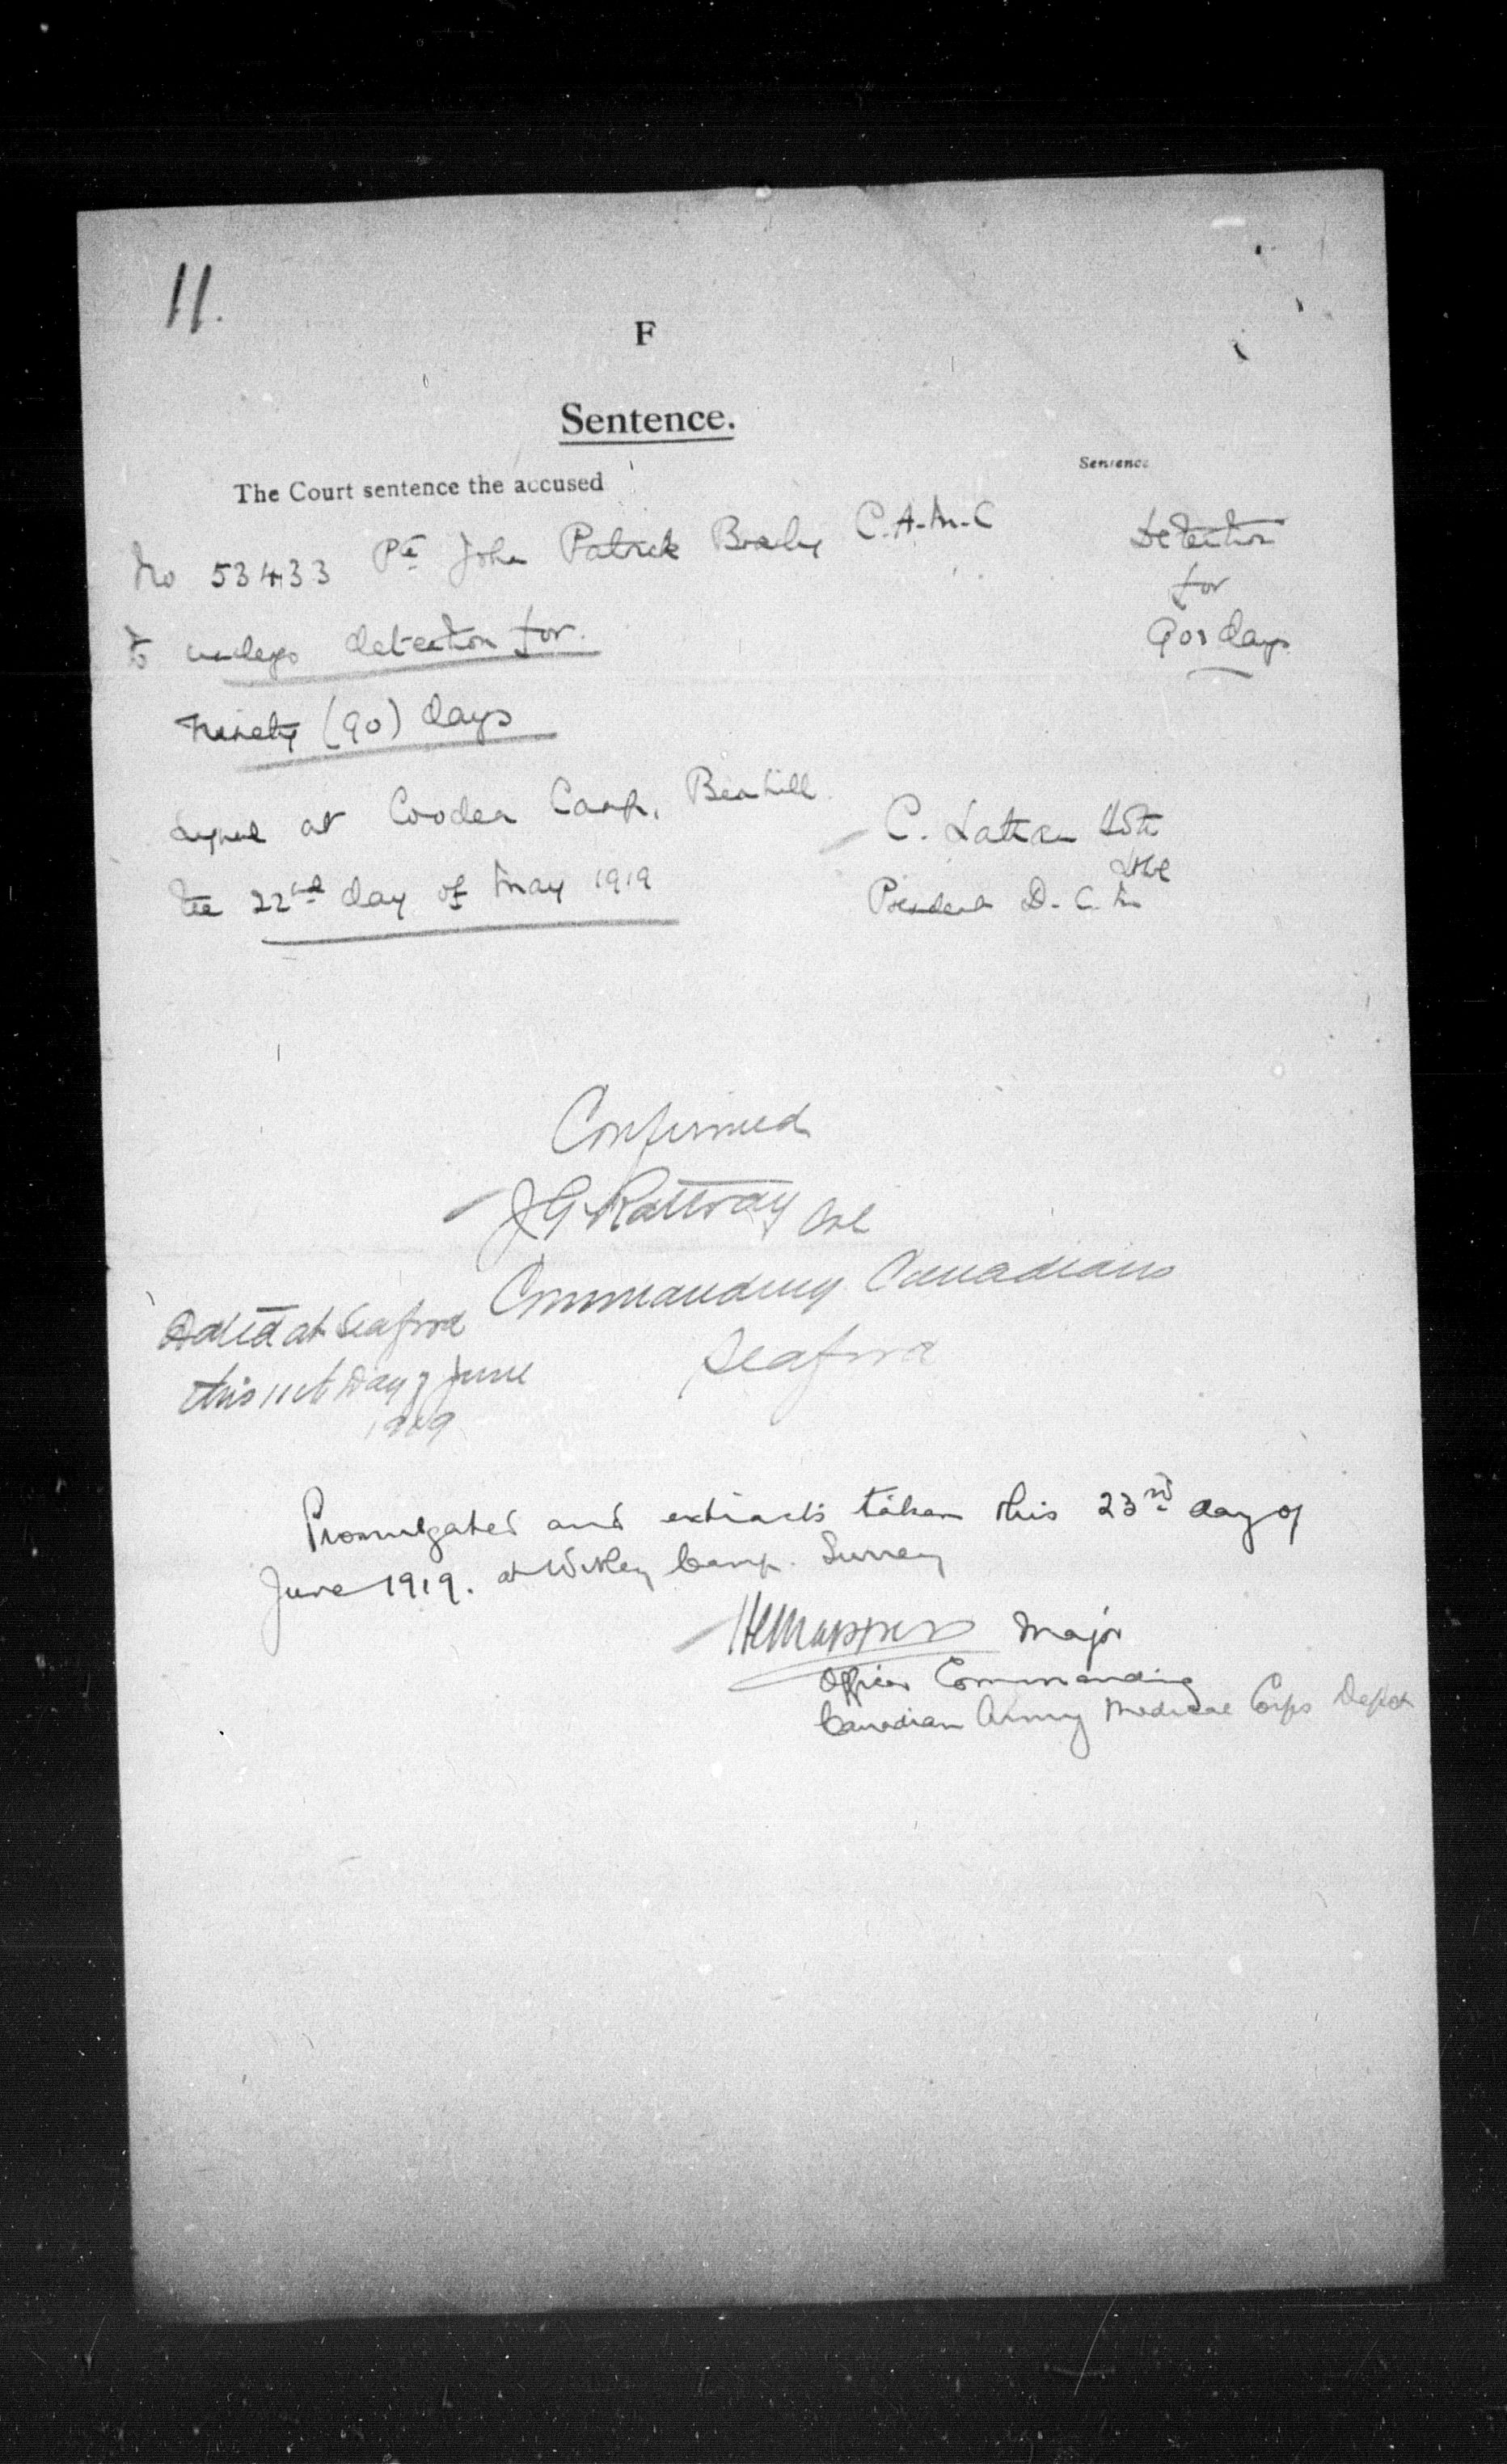 11.
F
Sentence.
The Court sentence the accused
Sentence
No 53433 Pte John Patrick C.A.M.C
Detention
for
90 days
to undergo detention for
Ninety (90) days
Signed at Cooden Camp, Bexhill
the 22nd day of May 1919
C.
President D.C.M
Confirmed
J G Rattray Col
Commanding Canadians
Seaford
Dated at Seaford
this 11th Day of June
1919
Promulgated and extracts taken this 23rd day of
June 1919. at Witley Camp. Surrey
Major
Officer Commanding
Canadian Army Medical Corps Depot